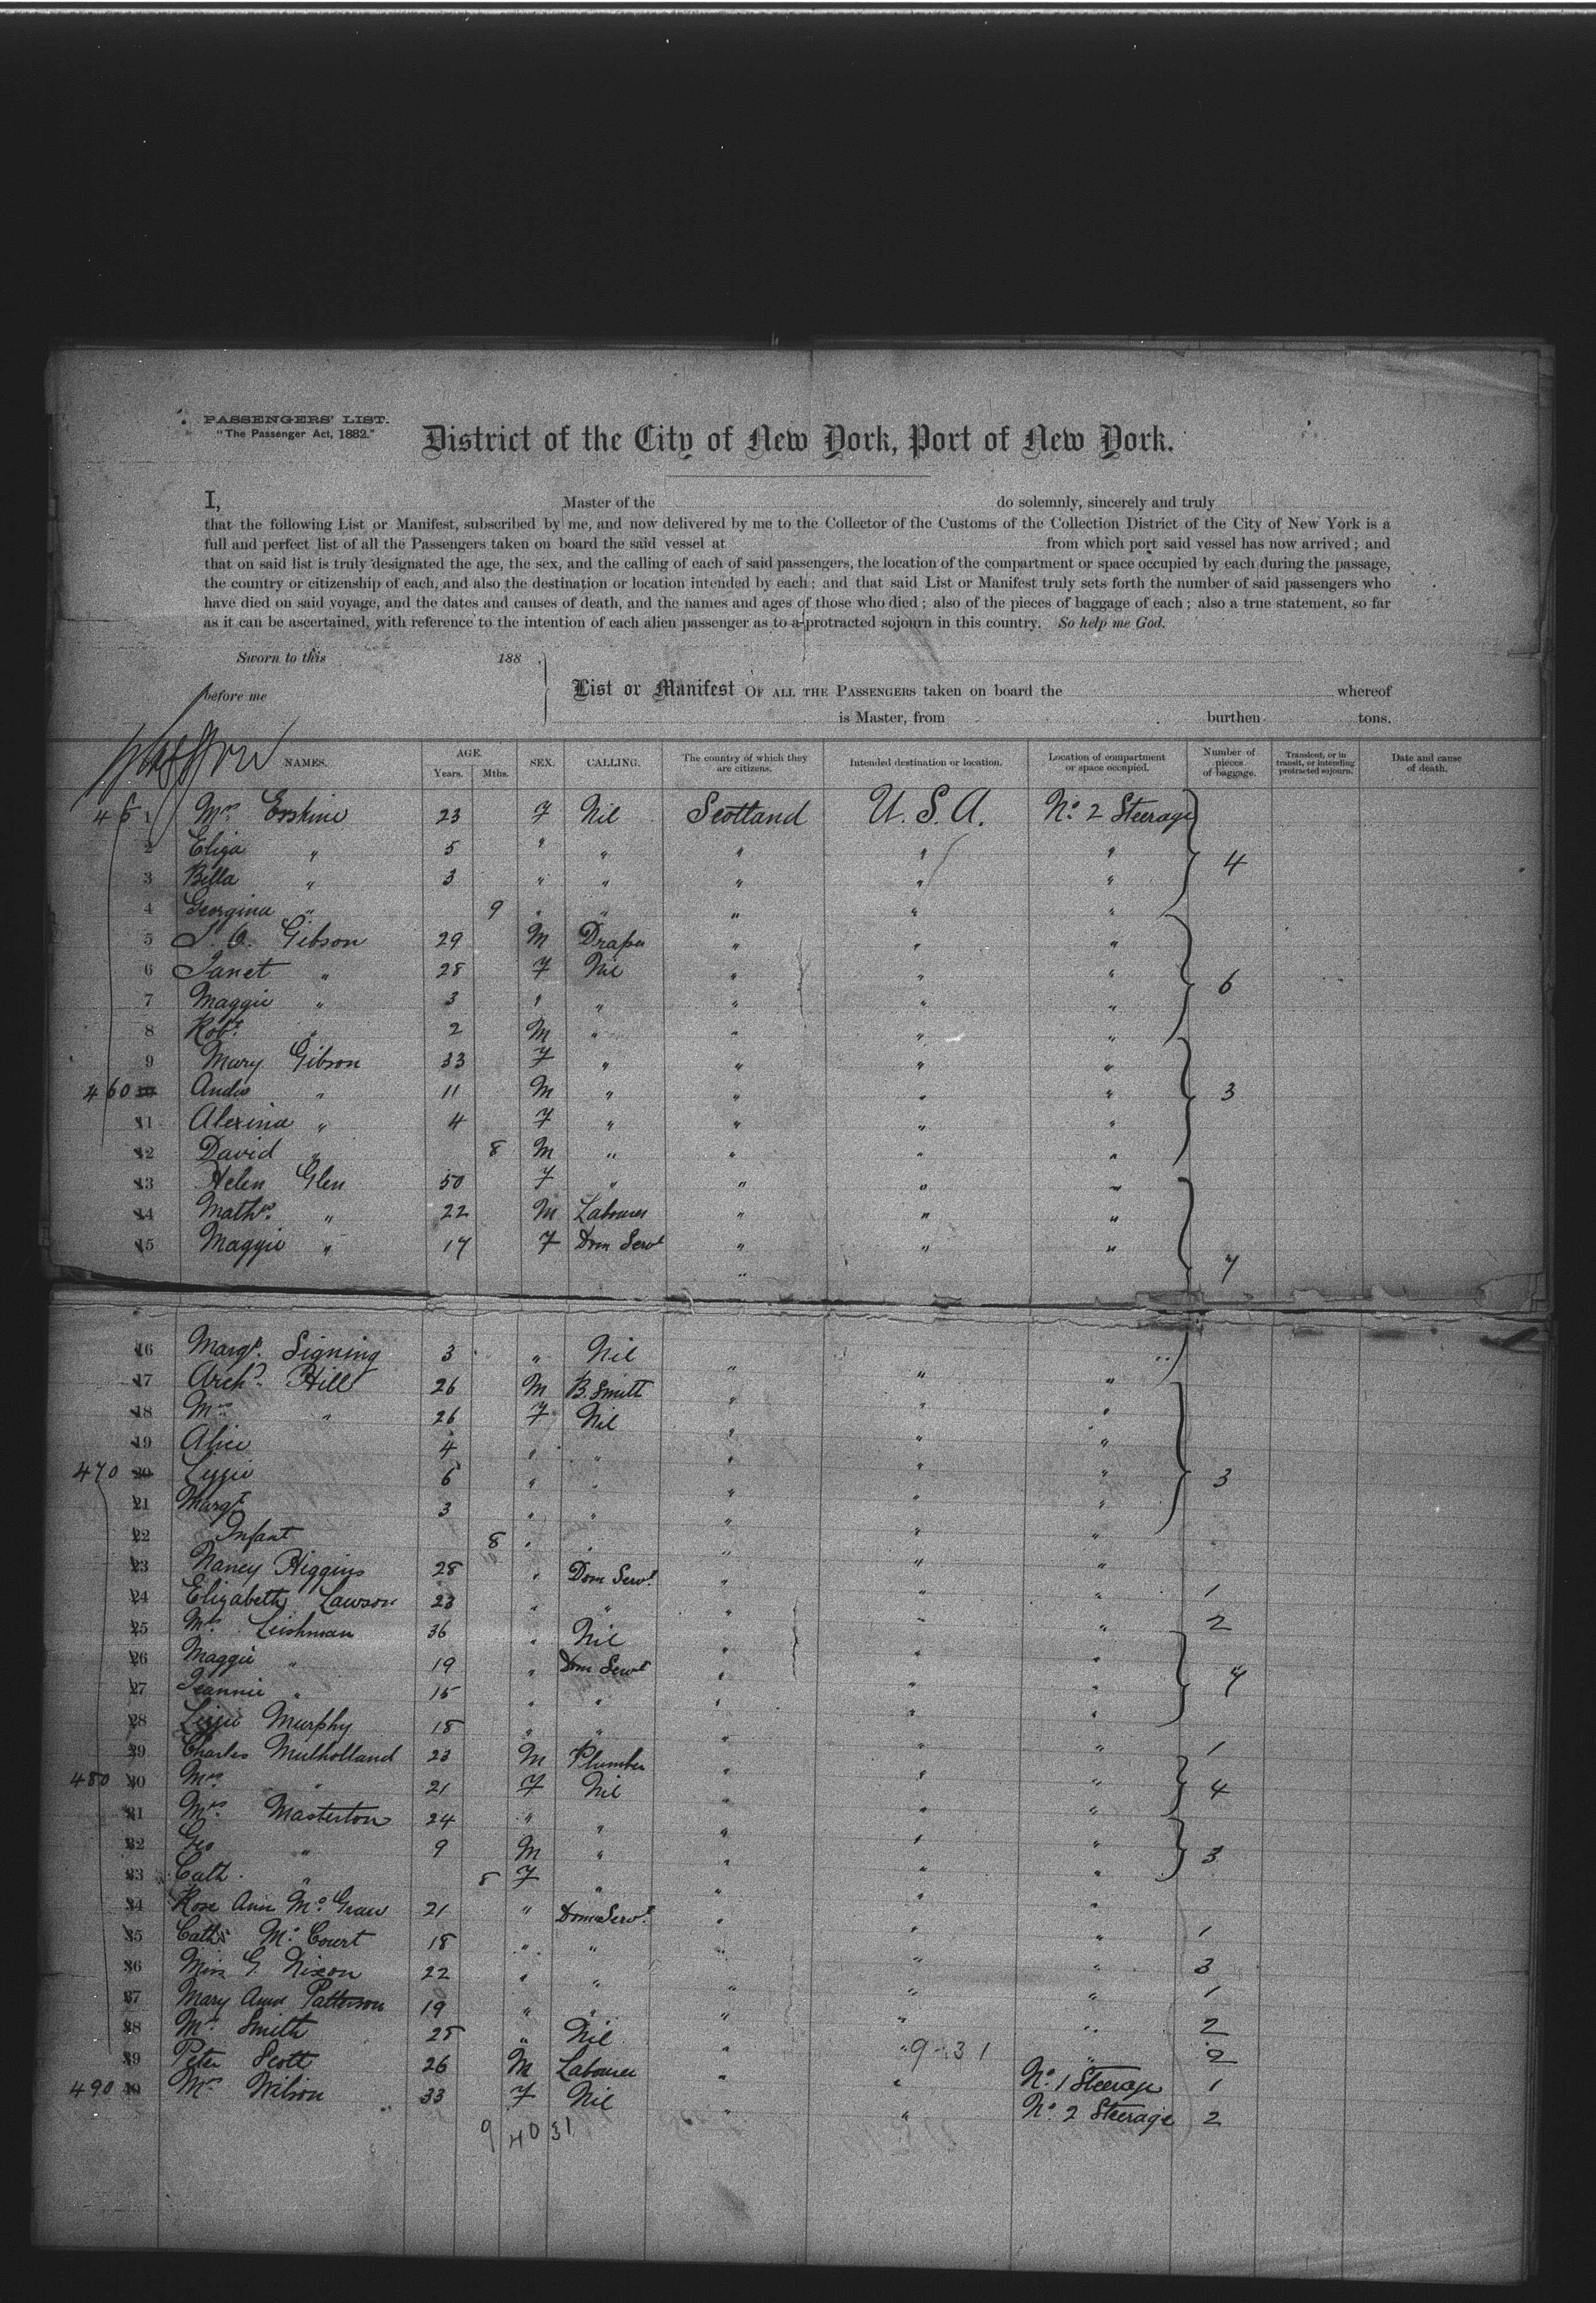 PASSENGERS' LIST.
"The Passenger Act, 1882."
District of the City of New York, Port of New York.
I, Master of the do solemnly, sincerely and truly
that the following List or Manifest, subscribed by me, and now delivered by me to the Collector of the Customs of the Collection District of the City of New York is a
full and perfect list of all the Passengers taken on board the said vessel at from which port said vessel has now arrived; and
that on said list is truly designated the age, the sex, and the calling of each of said passengers, the location of the compartment or space occupied by each during the passage,
the country or citizenship of each, and also the destination or location intended by each; and that said List or Manifest truly sets forth the number of said passengers who
have died on said voyage, and the dates and causes of death, and the names and ages of those who died; also of the pieces of baggage of each; also a true statement, so far
as it can be ascertained, with reference to the intention of each alien passenger as to a protracted sojourn in this country. So help me God.
Sworn to this 188
before me
List or Manifest OF ALL THE PASSENGERS taken on board the whereof
is Master, from burthen tons.
NAMES. AGE. Years. Mths. SEX. CALLING. The country of which they are citizens. Intended destination or location. Location of compartment or space occupied. Number of pieces of baggage. Transient, or in transit, or intending protracted sojourn. Date and cause of death.
1 Mrs Erskine 23 F Nil Scotland U.S.A. No. 2 Steerage
2 Eliza " 5 " " " " "
3 Bella " 3 " " " " " 4
4 Georgina " 9 " " " " "
5 J. O. Gibson 29 M Draper " " "
6 Janet " 28 F Nil " " "
7 Maggie " 3 " " " " " 6
8 Robt. " 2 M " " " "
9 Mary Gibson 33 F " " " "
460 10 Andw " 11 M " " " " 3
11 Alexina " 4 F " " " "
12 David " 8 M " " " "
13 Helen Glen 50 F " " " "
14 Mathw. " 22 M Labourer " " "
15 Maggie " 17 F Dom Servt " " " 7
16 Margt. Signing 3 " Nil " " "
17 Archd. Hill 26 M B. Smith " " "
18 Mrs " 26 F Nil " " "
19 Alice 4 " " " " "
470 20 Lizzie 6 " " " " " 3
21 Margt 3 " " " " "
22 Infant 8 " " " " "
23 Nancy Higgins 28 " Dom Servt. " " " 1
24 Elizabeth Lawson 23 " " " " " 2
25 Mrs. Leishman 36 " Nil " " "
26 Maggie " 19 " Dom Servt " " " 7
27 Jeannie " 15 " " " " "
28 Lizzie Murphy 18 " " " " " 1
29 Charles Mulholland 23 M Plumber " " "
480 30 Mrs " 21 F Nil " " " 4
31 Mrs. Masterton 24 " " " " "
32 Geo " 9 M " " " " 3
33 Cath. " 8 F " " " "
34 Rose Ann McGraw 21 " Dom Servt. " " " 1
35 Cath McCourt 18 " " " " " 3
36 Miss G. Nixon 22 " " " " " 1
37 Mary Ann Patterson 19 " " " " " 2
38 Mrs. Smith 25 " Nil " " " 2
9 31
39 Peter Scott 26 M Labourer " " No. 1 Steerage 1
490 40 Mrs Wilson 33 F Nil " " No. 2 Steerage 2
9 40 31